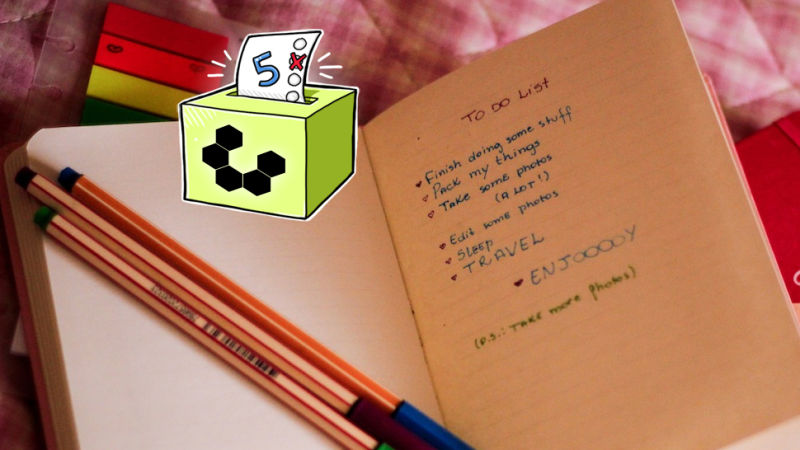 5
To Do List
Finish doing some stuff
Pack my things
Take some photos
(A LOT!)
Edit some photos
SLEEP
TRAVEL
ENJOOOOY
(P.S.: Take more photos)